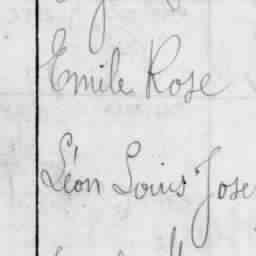 Emile Rose
Léon Louis Jose